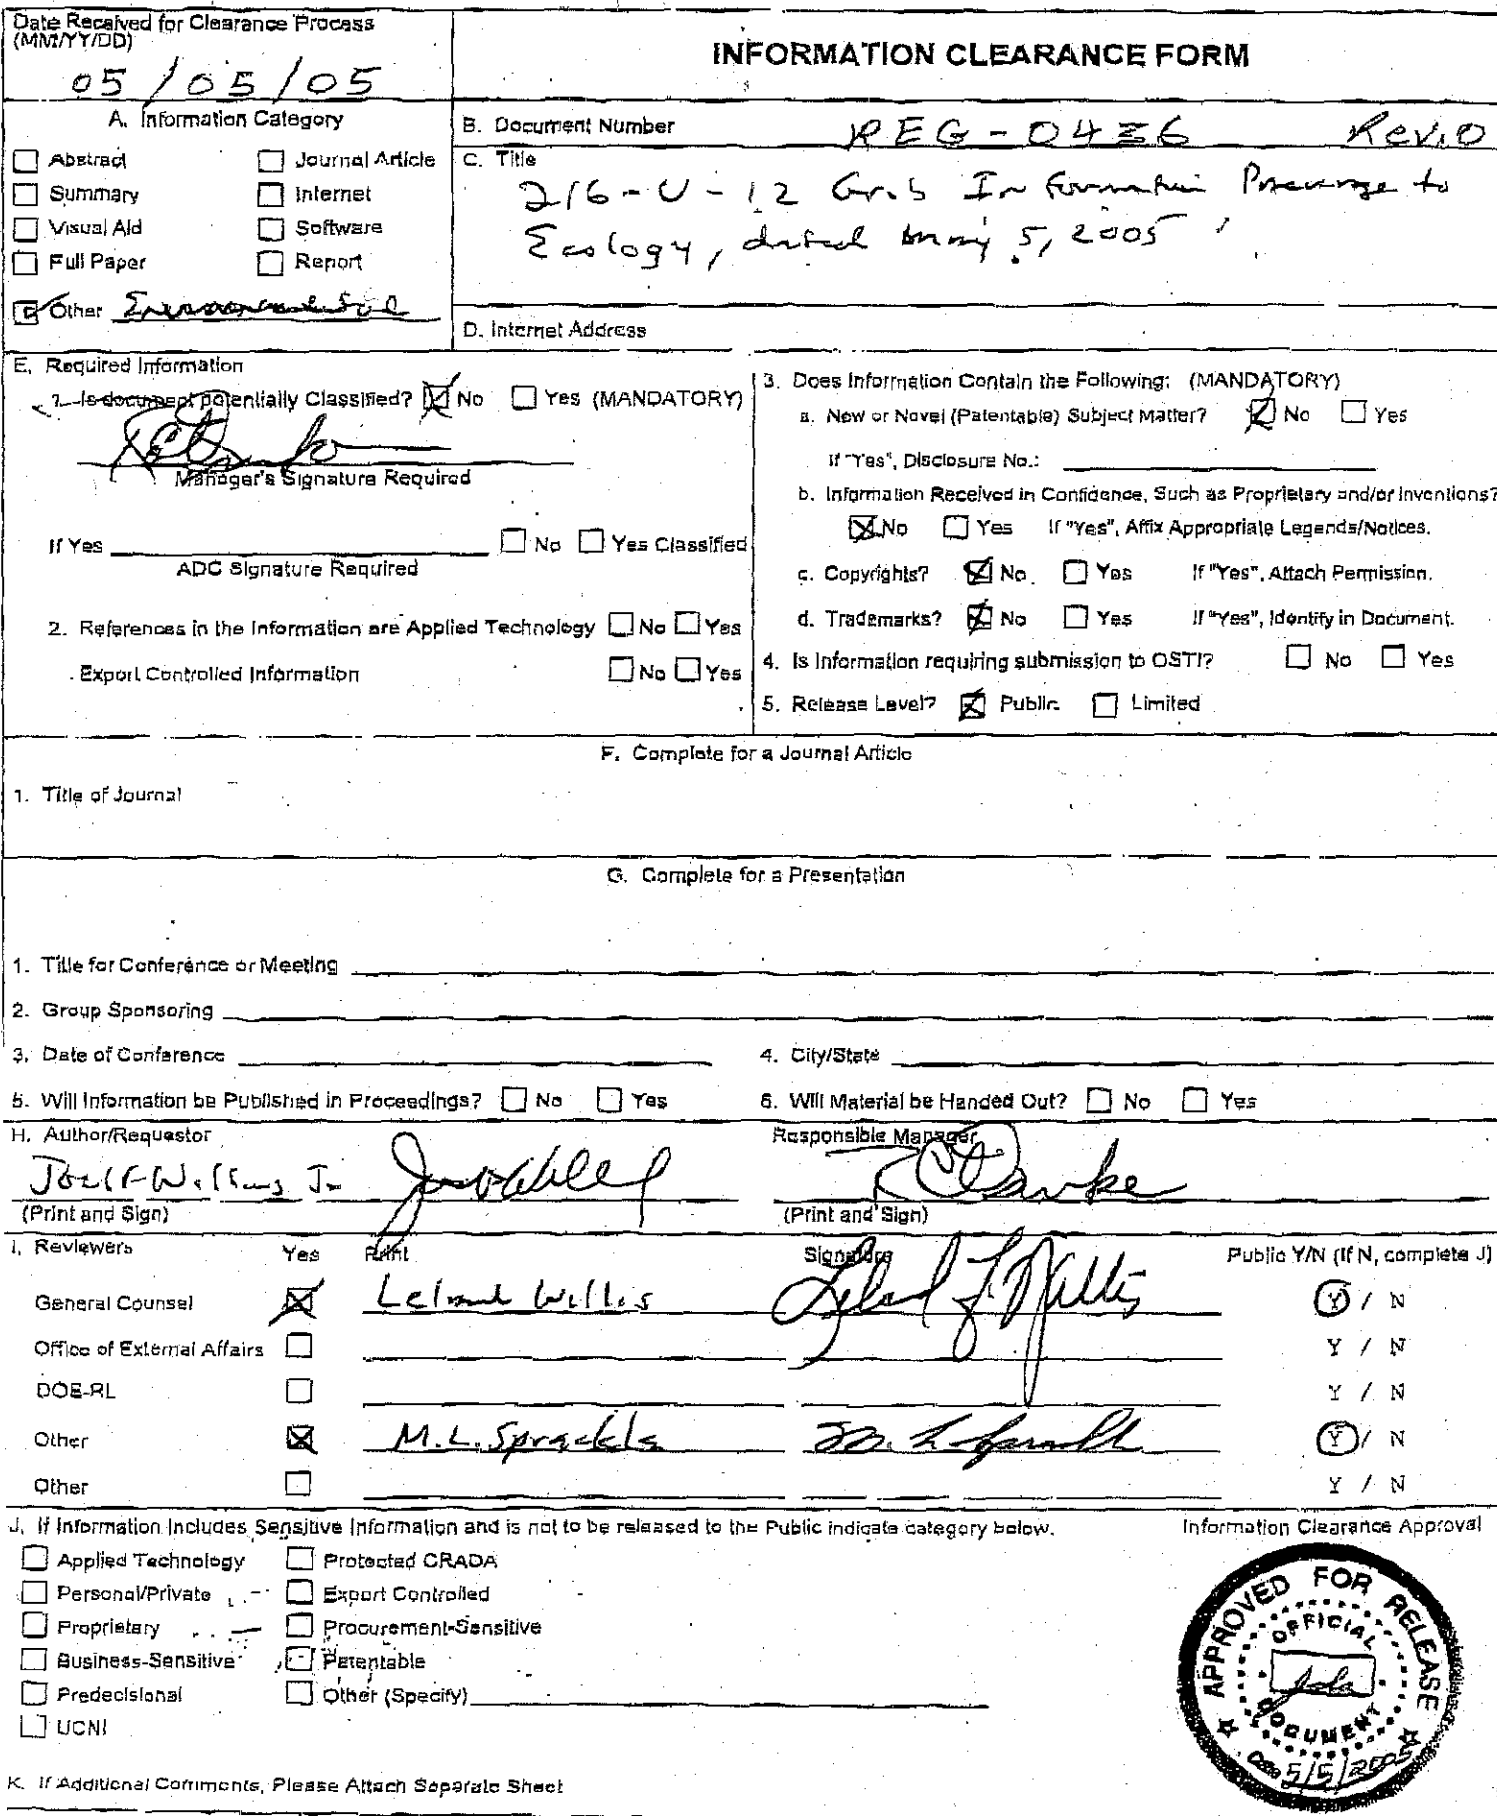 Date Received for Clearance Process
(MM/YY/DD)
05/05/05
INFORMATION CLEARANCE FORM
A. Information Category
Abstract
Journal Article
Summary
Internet
Visual Aid
Software
Full Paper
Report
Other
B. Document Number REG-0436 Rev.0
C. Title
216-U-12 Information to
Ecology, dated 5, 2005
D. Internet Address
E. Required Information
1. Is document potentially Classified? No Yes (MANDATORY)
Manager's Signature Required
If Yes No Yes Classified
ADC Signature Required
2. References in the Information are Applied Technology No Yes
Export Controlled Information No Yes
3. Does Information Contain the Following: (MANDATORY)
a. New or Novel (Patentable) Subject Matter? No Yes
If "Yes", Disclosure No.:
b. Information Received in Confidence, Such as Proprietary and/or Inventions?
No Yes If "Yes", Affix Appropriate Legends/Notices.
c. Copyrights? No Yes If "Yes", Attach Permission.
d. Trademarks? No Yes If "Yes", Identify in Document.
4. Is Information requiring submission to OSTI? No Yes
5. Release Level? Public Limited
F. Complete for a Journal Article
1. Title of Journal
G. Complete for a Presentation
1. Title for Conference or Meeting
2. Group Sponsoring
3. Date of Conference
4. City/State
5. Will Information be Published in Proceedings? No Yes
6. Will Material be Handed Out? No Yes
H. Author/Requestor
Responsible Manager
(Print and Sign)
(Print and Sign)
I. Reviewers Yes Print Signature Public Y/N (If N, complete J)
General Counsel Willis Y / N
Office of External Affairs Y / N
DOE-RL Y / N
Other M.L. Y / N
Other Y / N
J. If Information Includes Sensitive Information and is not to be released to the Public indicate category below.
Information Clearance Approval
Applied Technology
Protected CRADA
Personal/Private
Export Controlled
Proprietary
Procurement-Sensitive
Business-Sensitive
Patentable
Predecisional
Other (Specify)
UCNI
APPROVED FOR RELEASE
OFFICIAL
DOCUMENT
5/5/2005
K. If Additional Comments, Please Attach Separate Sheet